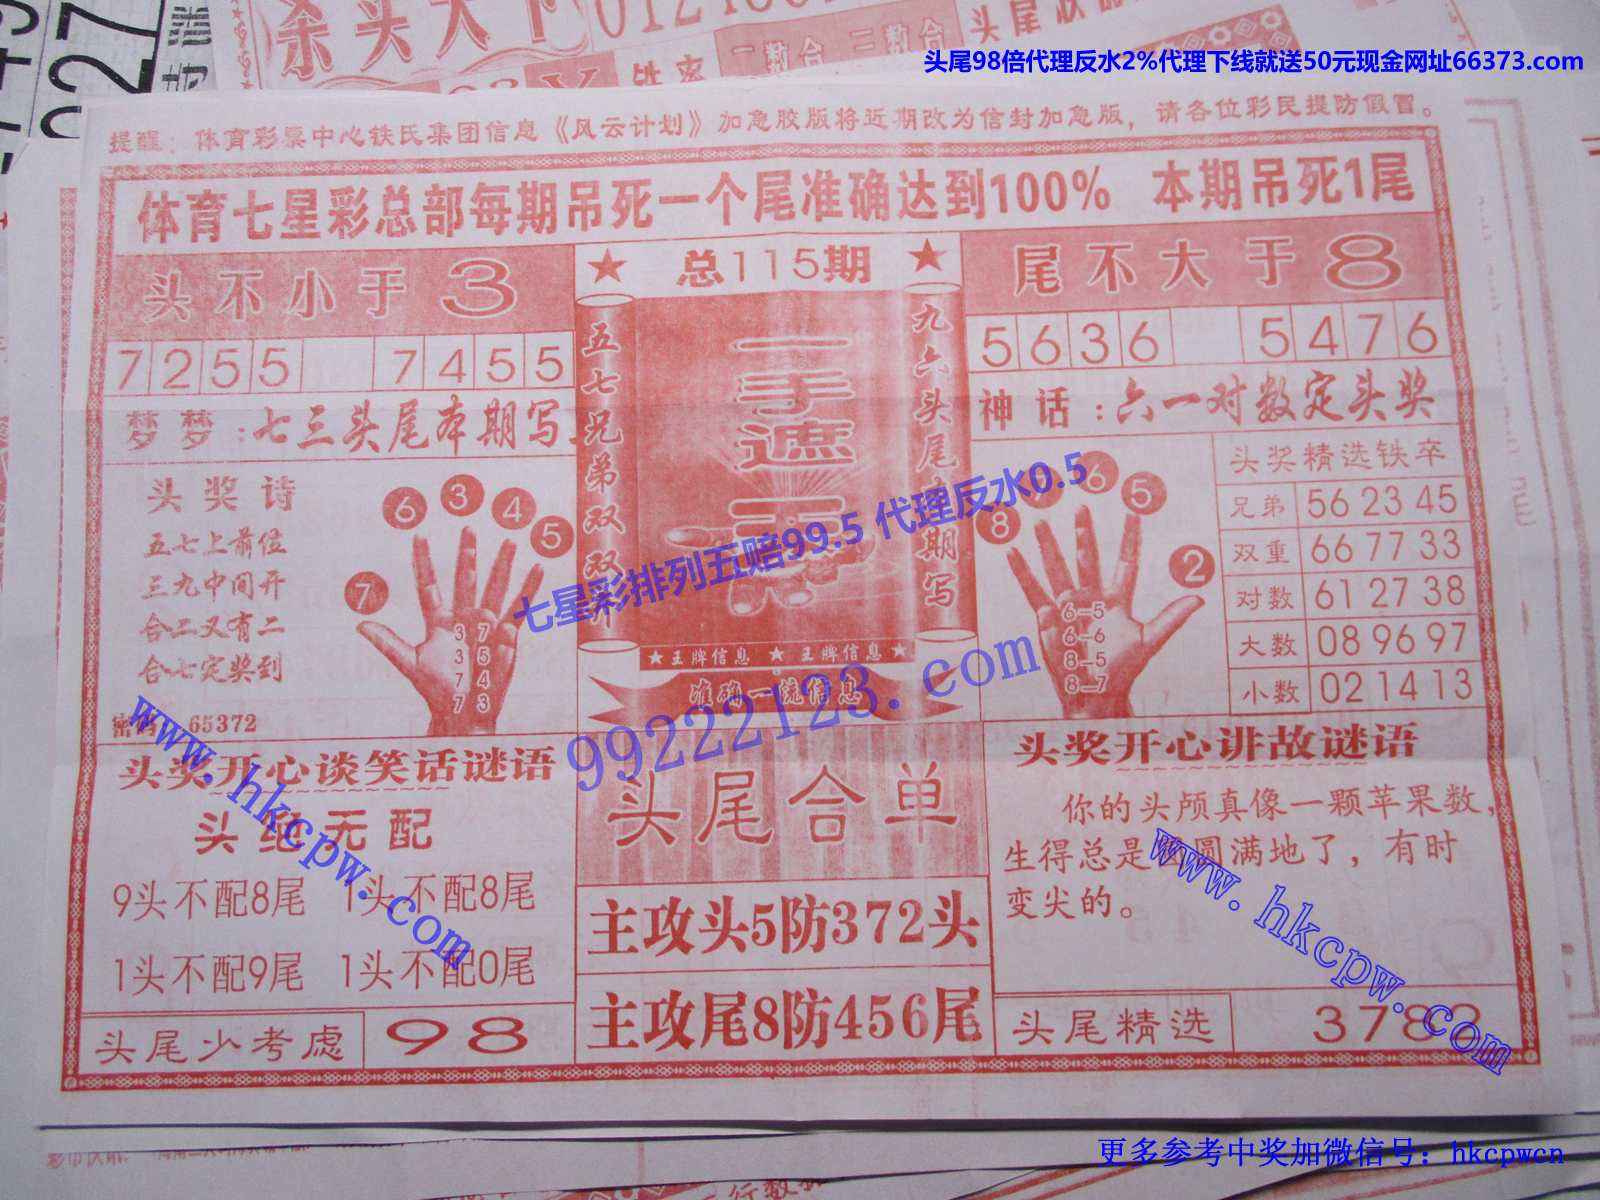 杀头天下
027
头尾98倍代理反水2%代理下线就送50元现金网址66373.com
提醒：体育彩票中心铁氏集团信息《风云计划》加急胶版将近期改为信封加急版，请各位彩民提防假冒。
体育七星彩总部每期吊死一个尾准确达到100% 本期吊死1尾
头不小于3
7255 7455
梦梦：七三头尾本期写
头奖诗
五七上前位
三九中间开
合二又有二
合七定奖到
65372
7 6 3 4 5
3 7
3 5
7 4
7 3
★ 总115期 ★
五七兄弟双双
九六头尾
期写
一手遮
★王牌信息 ★ 王牌信息★
准确一流信息
尾不大于8
5636 5476
神话：六一对数定头奖
8 6 5 2
6–5
6–6
8–5
8–7
头奖精选铁卒
兄弟 56 23 45
双重 66 77 33
对数 61 27 38
大数 08 96 97
小数 02 14 13
七星彩排列五赔99.5 代理反水0.5
99222123. com
www. hkcpw. com
头奖开心谈笑话谜语
头绝无配
9头不配8尾 1头不配8尾
1头不配9尾 1头不配0尾
头尾少考虑 98
头尾合单
主攻头5防372头
主攻尾8防456尾
头奖开心讲故谜语
你的头颅真像一颗苹果数，
生得总是 圆满地了，有时
变尖的。
www. hkcpw. com
头尾精选 378
更多参考中奖加微信号：hkcpwcn